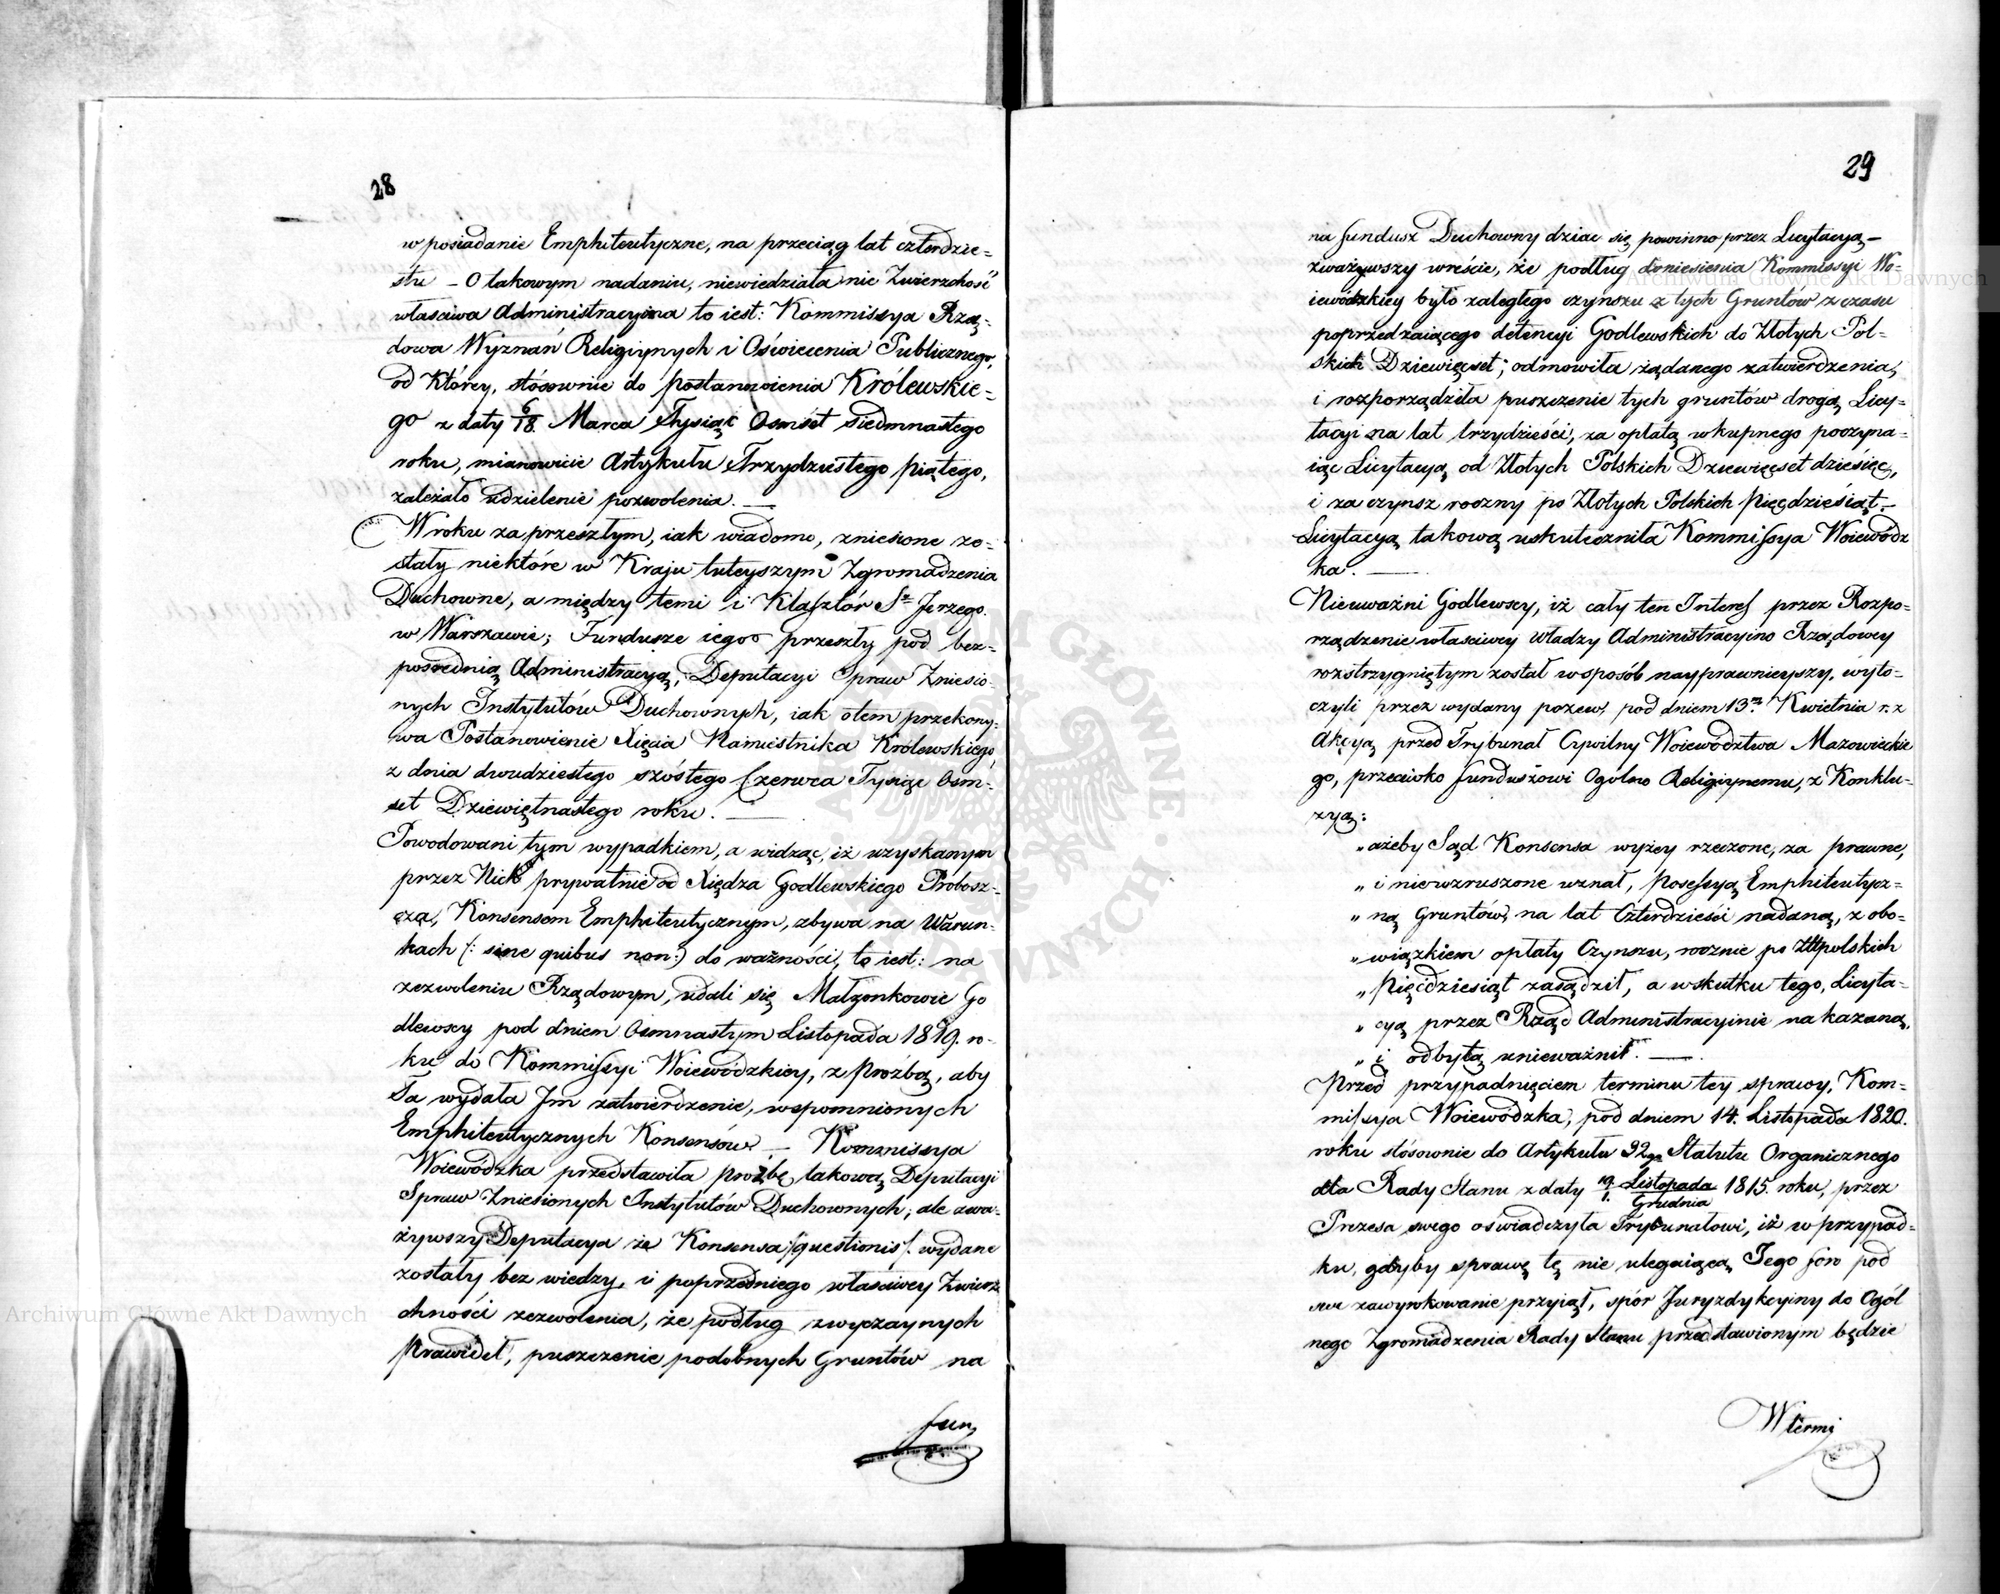 28
w posiadanie Emphiteutyczne, na przeciąg lat czterdzie=
stu – O takowym nadaniu, niewiedziała nic Zwierzchość
własciwa Administracyina to iest: Kommissya Rzą=
dowa Wyznań Religiynych i Oświecenia Publicznego,
od Którey, stósownie do postanowienia Królewskie=
go z daty 6/18 Marca Tysiąc Osmset siedmnastego
roku, mianowicie Artykułu Trzydziestego piątego,
zależało udzielenie pozwolenia. —
W roku zaprzeszłym, iak wiadomo, zniesione zo=
stały niektóre w Kraju tuteyszym Zgromadzenia
Duchowne, a między temi i Klasztór Sgo Jerzego
w Warszawie; Fundusze iego przeszły pod bez=
pośrednią Administracyą, Deputacyi Spraw Zniesio=
nych Instytutów Duchownych, iak otem przekony=
wa Postanowienie Xięcia Namiestnika Królewskiego,
z dnia dwudziestego szóstego Czerwca Tysiąc Osm=
set Dziewiętnastego roku. —
Powodowani tym wypadkiem, a widząc, iż uzyskanym
przez Nich prywatnie od Xiędza Godlewskiego Probosz=
cza, Konsensom Emphiteutycznym, zbywa na Warun=
kach (: sine quibus non:) do ważności, to iest: na
zezwoleniu Rządowym, udali się Małzonkowie Go
dlewscy pod dniem Osmnastym Listopada 1819. ro=
ku do Kommissyi Woiewódzkiey, z Prożbą, aby
Ta wydała Im zatwierdzenie, wspomnionych
Emphiteutycznych Konsensów. – Kommissya
Woiewódzka przedstawiła prożbę takową Deputacyi
Spraw Zniesionych Instytutów Duchownych; ale zwa=
żywszy Deputacya że Konsensa /:questionis/: wydane
zostały bez wiedzy, i poprzedniego własciwey Zwierz
chności zezwolenia, że podług zwyczaynych
Prawideł, puszczenie podobnych Gruntów na
fun
29
na fundusz Duchowny dziac się powinno przez Licytacyą –
zważywszy wreście, że podług doniesienia Kommissyi Wo=
iewódzkiey było zaległego czynszu z tych Gruntów z czasu
poprzedzaiącego detencyi Godlewskich do Złotych Pol=
skich Dziewięcset; odmowiła żądanego zatwierdzenia,
i rozporządziła puszczenie tych gruntów drogą Licy=
tacyi na lat trzydzieści, za opłatą wkupnego poczyna=
iąc Licytacyą od Złotych Polskich Dziewięcset dziesięć,
i za czynsz roczny po Złotych Polskich Pięćdziesiąt. –
Licytacyą takową uskuteczniła Kommissya Woiewódz
ka. —
Nieuważni Godlewscy, iż cały ten Interess przez Rozpo=
rządzenie właściwey władzy Administracyino Rządowey
rozstrzygniętym został w sposób nayprawnieyszy, wyto=
czyli przez wydany pozew, pod dniem 13m Kwietnia r. z
Akcyą przed Trybunał Cywilny Woiewództwa Mazowieckie
go, przeciwko funduszowi Ogólno Religiynemu, z Konklu=
zyą:
„ ażeby Sąd Konsensa wyżey rzeczone, za prawne,
„ i niewzruszone uznał, Possessyą Emphiteutycz=
„ ną Gruntów, na lat Czterdzieści nadaną, z obo=
„ wiązkiem opłaty Czynszu, rocznie po Złłpolskich
„ Pięćdziesiąt zasądził, a wskutku tego, Licyta=
„ cyą przez Rząd Administracyinie nakazaną,
„ i odbytą unieważnił. —
Przed przypadnięciem terminu tey sprawy, Kom=
missya Woiewódzka, pod dniem 14. Listopada 1820.
roku stósownie do Artykułu 32go Statutu Organicznego
dla Rady Stanu z daty 19. Listopada / 1. Grudnia 1815. roku, przez
Prezesa swego oświadczyła Trybunałowi, iż w przypad=
ku, gdyby sprawę tę nie ulegaiącą Jego foro pod
swe zawyrokowanie przyiął, spór Juryzdykcyiny do Ogól
nego Zgromadzenia Rady Stanu przedstawionym będzie
W termi
Archiwum Główne Akt Dawnych
Archiwum Główne Akt Dawnych